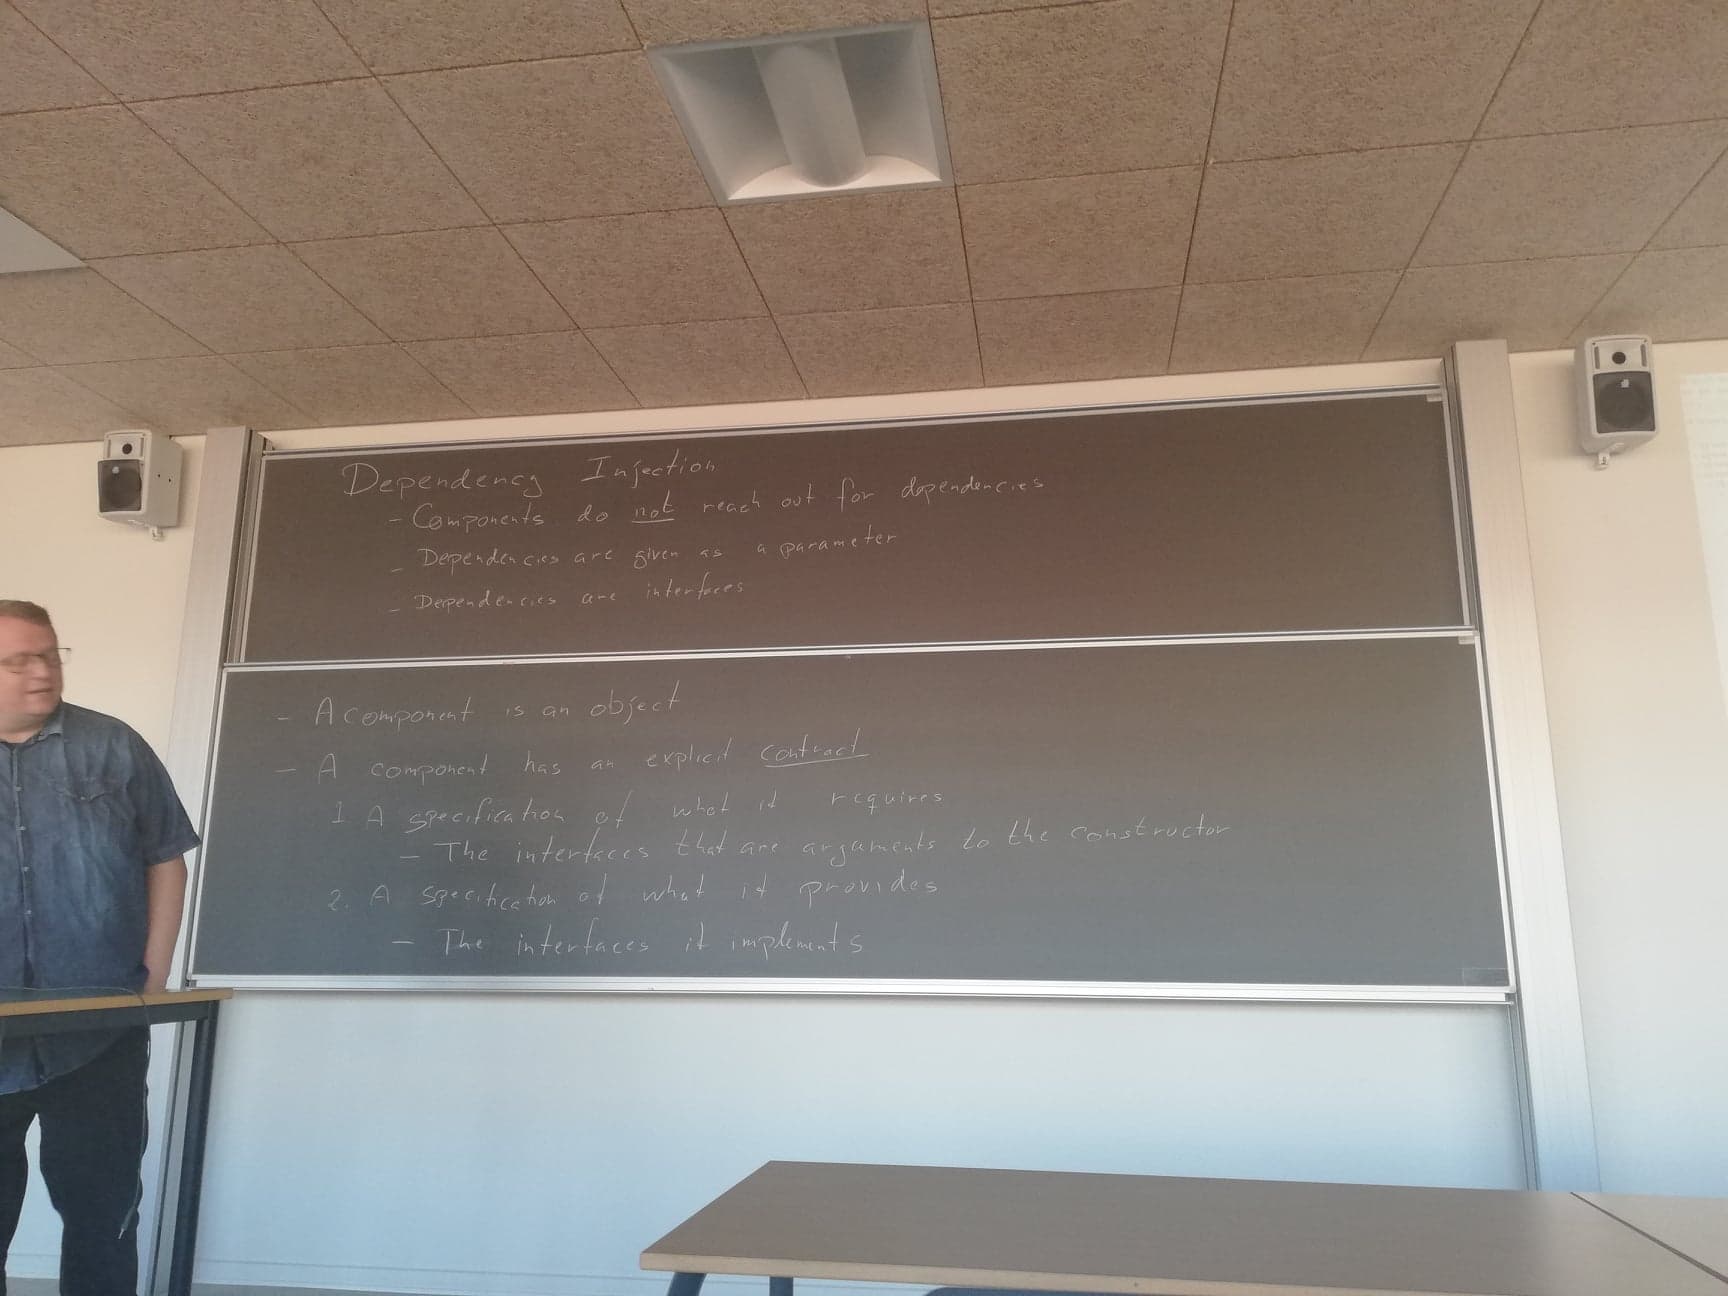 Dependency Injection
- Components do not reach out for dependencies
- Dependencies are given as a parameter
- Dependencies are interfaces
- A component is an object
- A component has an explicit contract
1 A specification of what it requires
- The interfaces that are arguments to the constructor
2. A specification of what it provides
- The interfaces it implements